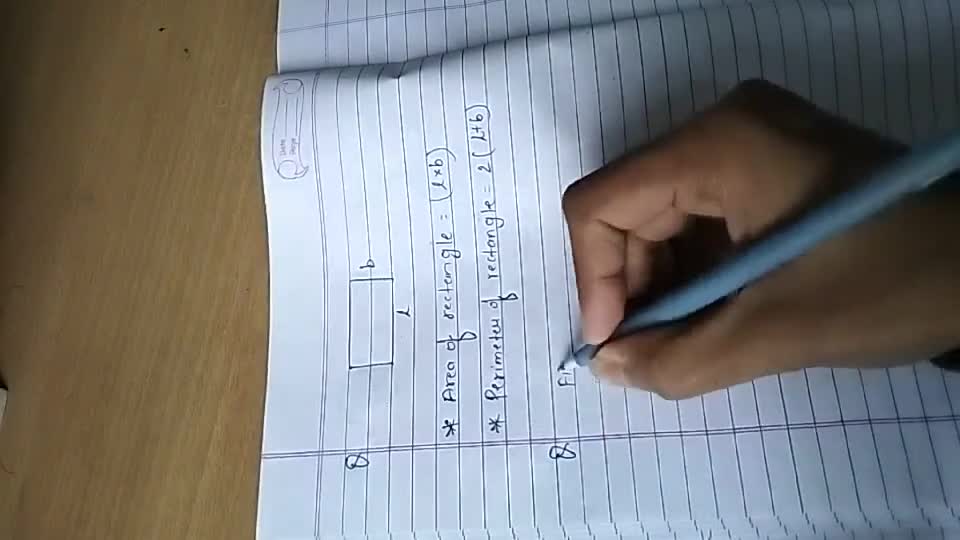 Date
Page
Q
b
L
* Area of rectangle = (L×b)
* Perimeter of rectangle = 2(L+b)
Q Fi